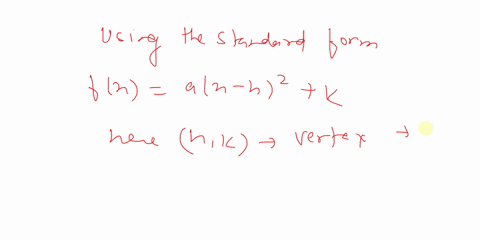 Using the standard form
f(x) = a(x-h)² + k
here (h,k) → vertex →